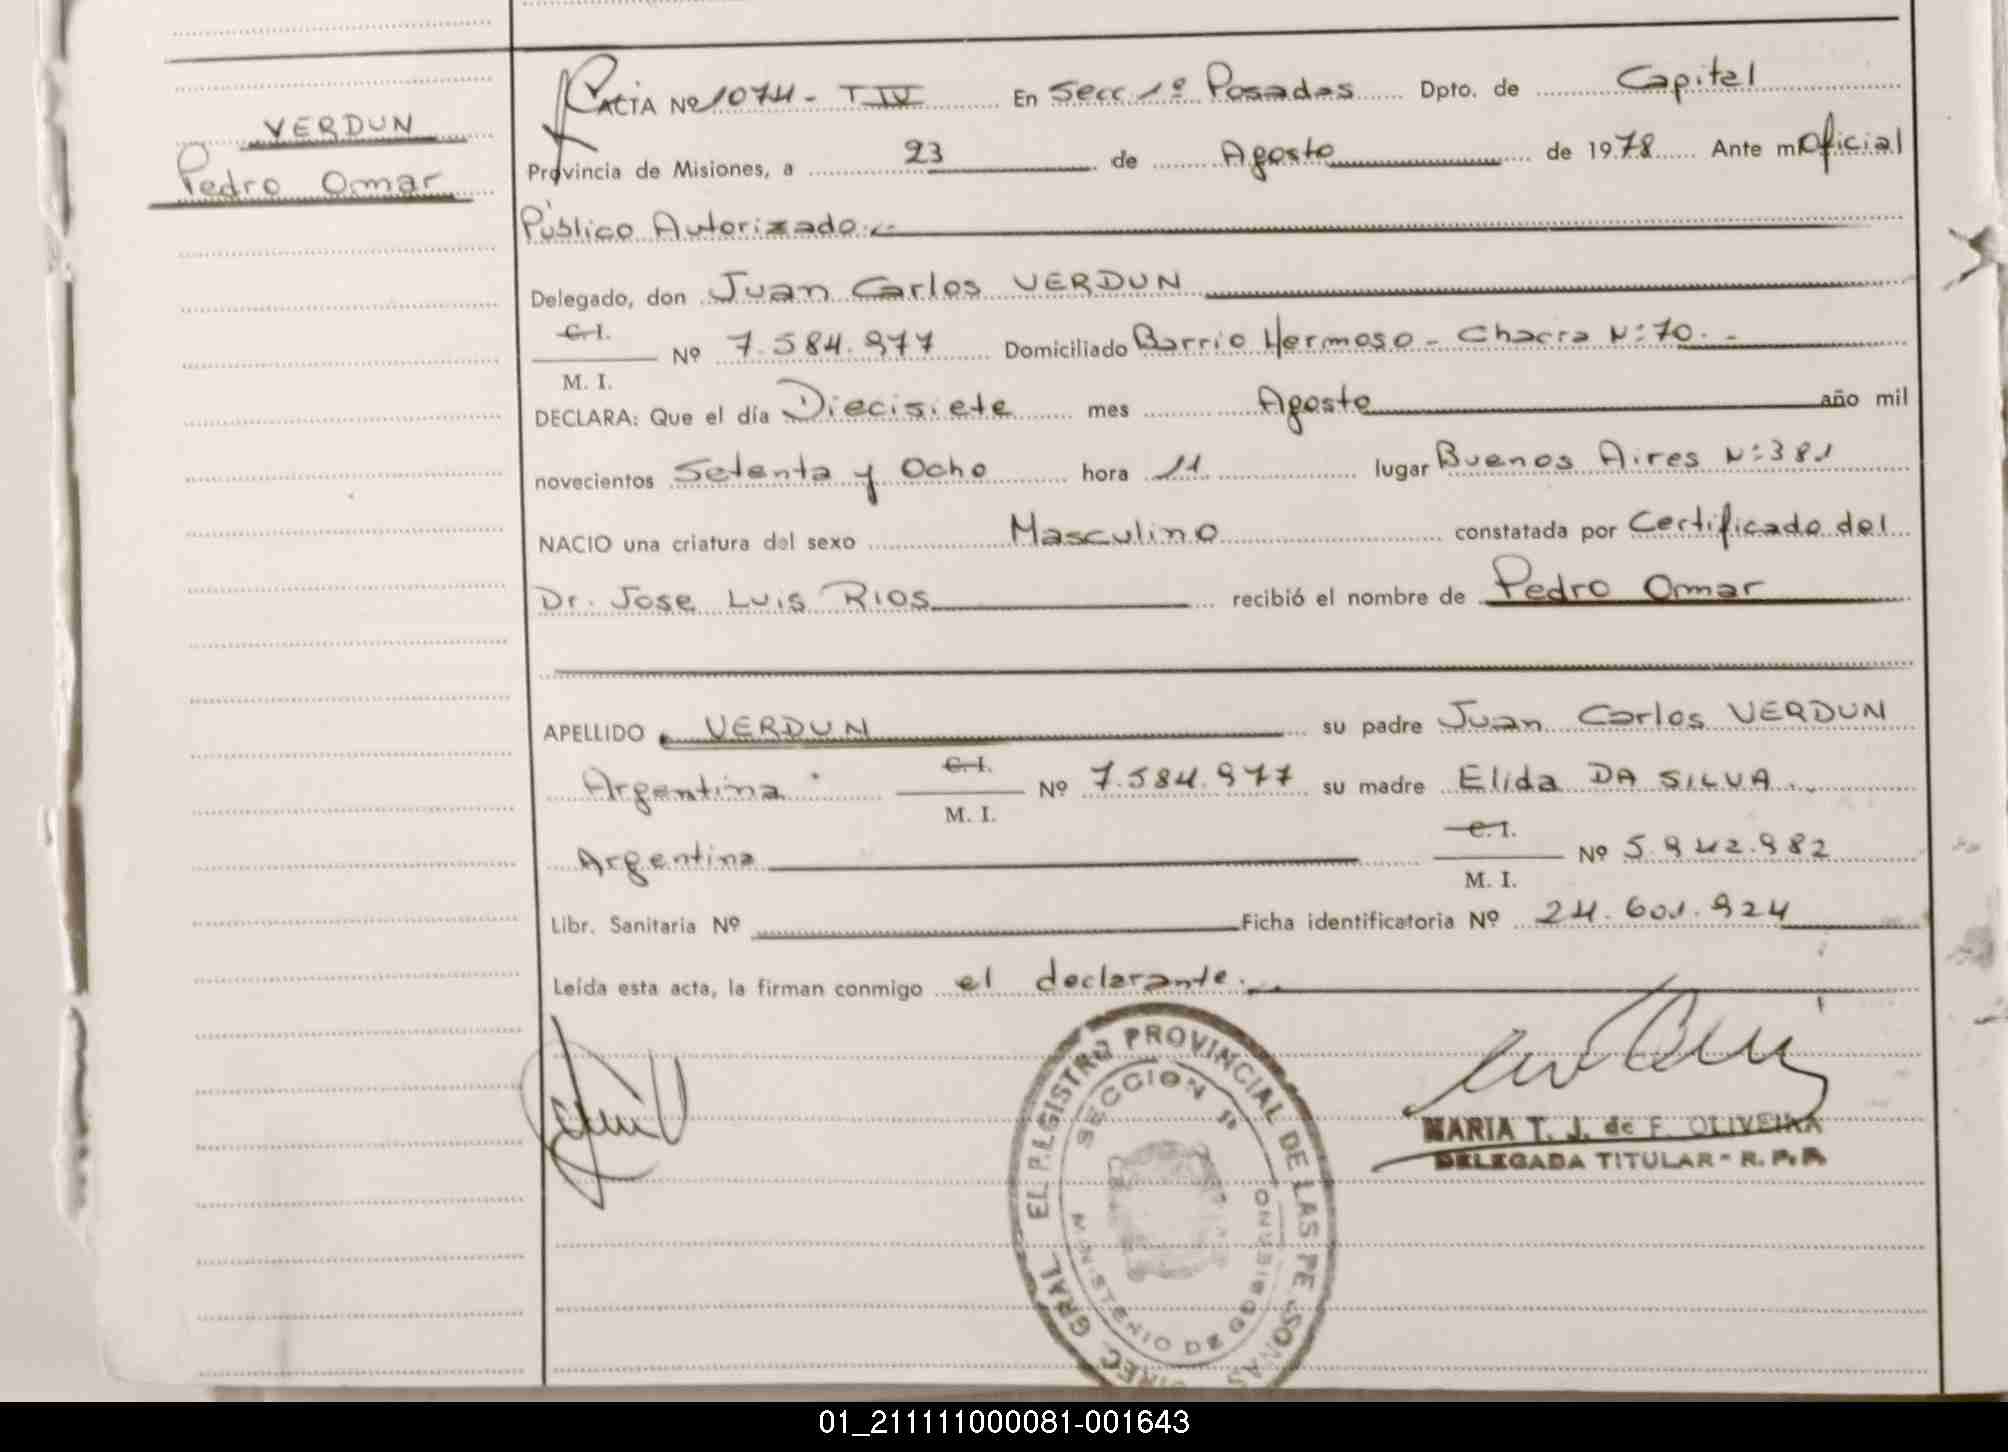 VERDUN
Pedro Omar
ACTA Nº 1074 - T IV En Secc 1º Posadas Dpto. de Capital
Provincia de Misiones, a 23 de Agosto de 1978 Ante mi Oficial
Público Autorizado.-
Delegado, don Juan Carlos VERDUN
C. I.
M. I.
Nº 7.584.977 Domiciliado Barrio Hermoso - Chacra N:70.-
DECLARA: Que el día Diecisiete mes Agosto año mil
novecientos Setenta y Ocho hora 11 lugar Buenos Aires N:381
NACIO una criatura del sexo Masculino constatada por Certificado del
Dr. Jose Luis Rios recibió el nombre de Pedro Omar
APELLIDO VERDUN su padre Juan Carlos VERDUN
Argentina C. I.
M. I.
Nº 7.584.977 su madre Elida DA SILVA.
Argentina C. I.
M. I.
Nº 5.942.982
Libr. Sanitaria Nº Ficha identificatoria Nº 24.601.924
Leída esta acta, la firman conmigo el declarante.
REGISTRO PROVINCIAL DE LAS PERSONAS
DIREC. GRAL
SECCION
MINISTERIO DE GOBIERNO
MARIA T. J. de F. OLIVEIRA
DELEGADA TITULAR - R. P. P.
01_211111000081-001643